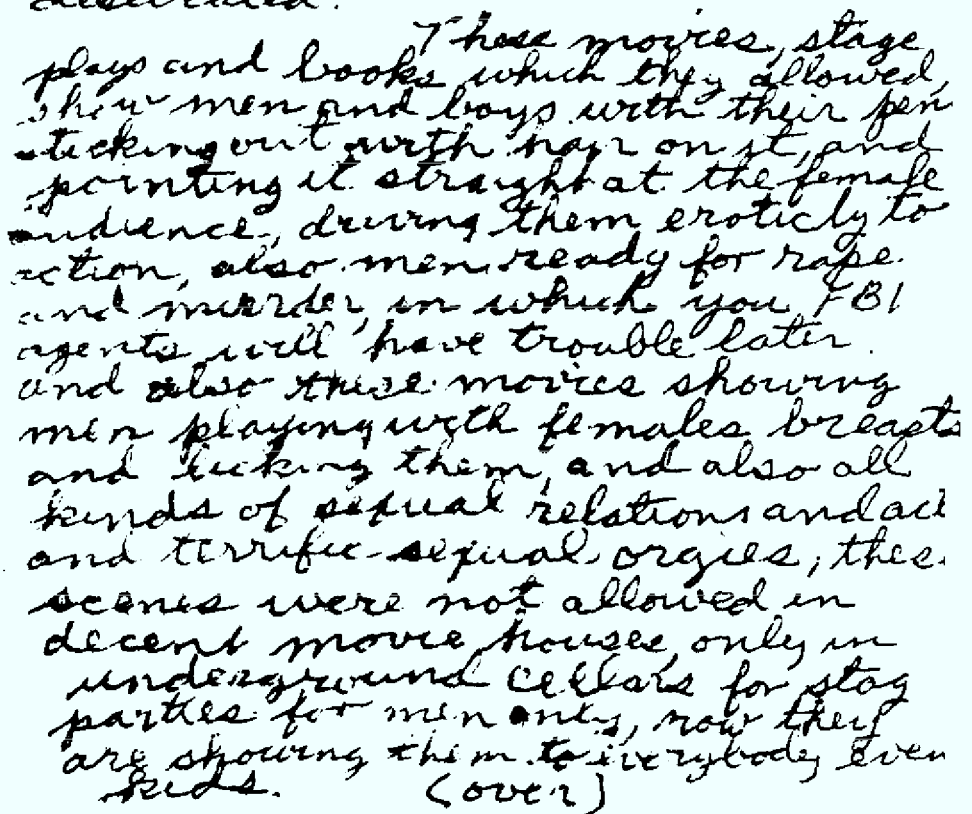 These movies, stage
plays and books which they allowed,
show men and boys with their pen
sticking out with hair on it, and
pointing it straight at the female
audience, driving them eroticly to
action, also men ready for rape
and murder, in which you FBI
agents will have trouble later.
and also these movies showing
men playing with females breasts
and licking them, and also all
kinds of sexual relations and act
and terrific sexual orgies, thes
scenes were not allowed in
decent movie houses, only in
underground cellars for stag
parties for men only, now they
are showing them to everybody even
kids. (over)